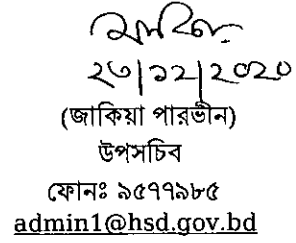 ২৩|১২|২০২০
(জাকিয়া পারভীন)
উপসচিব
ফোনঃ ৯৫৭৭৯৮৫
admin1@hsd.gov.bd